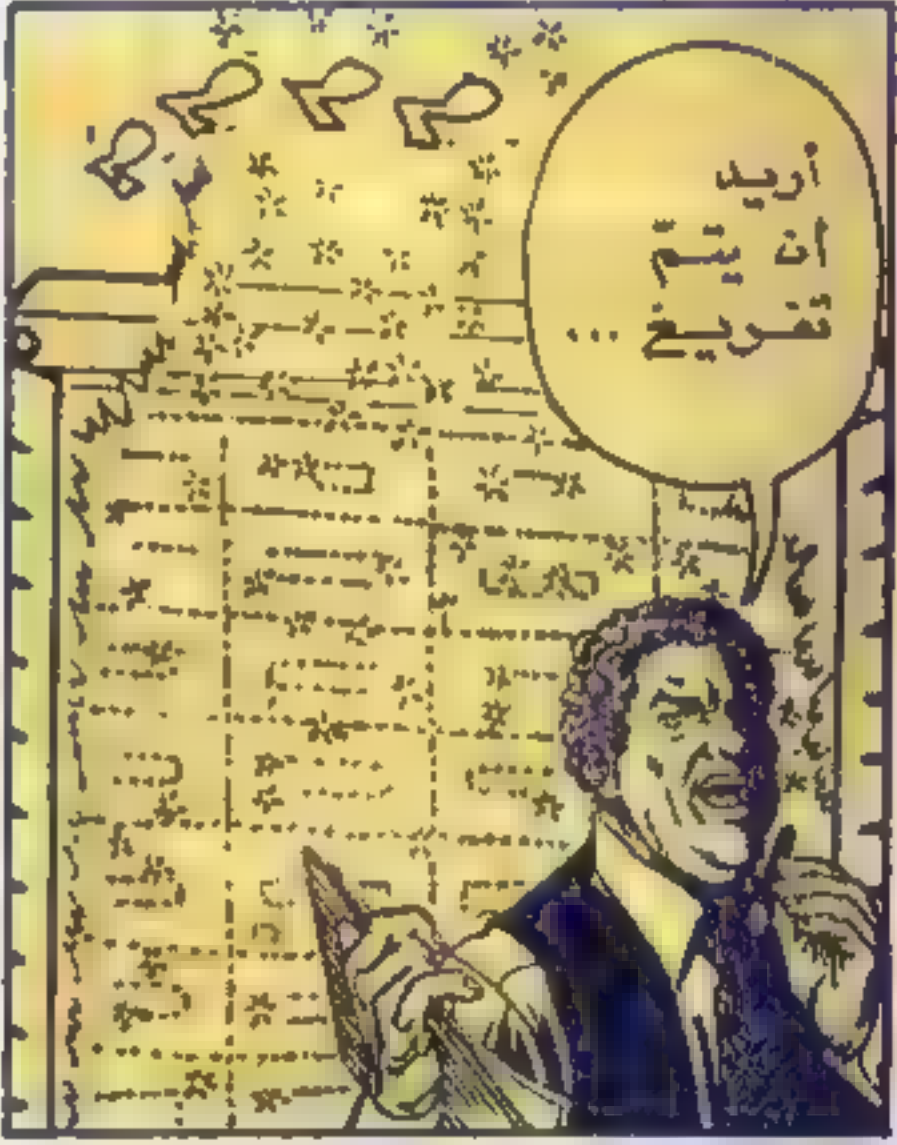 أريد
ان يتم
تفريغ ...